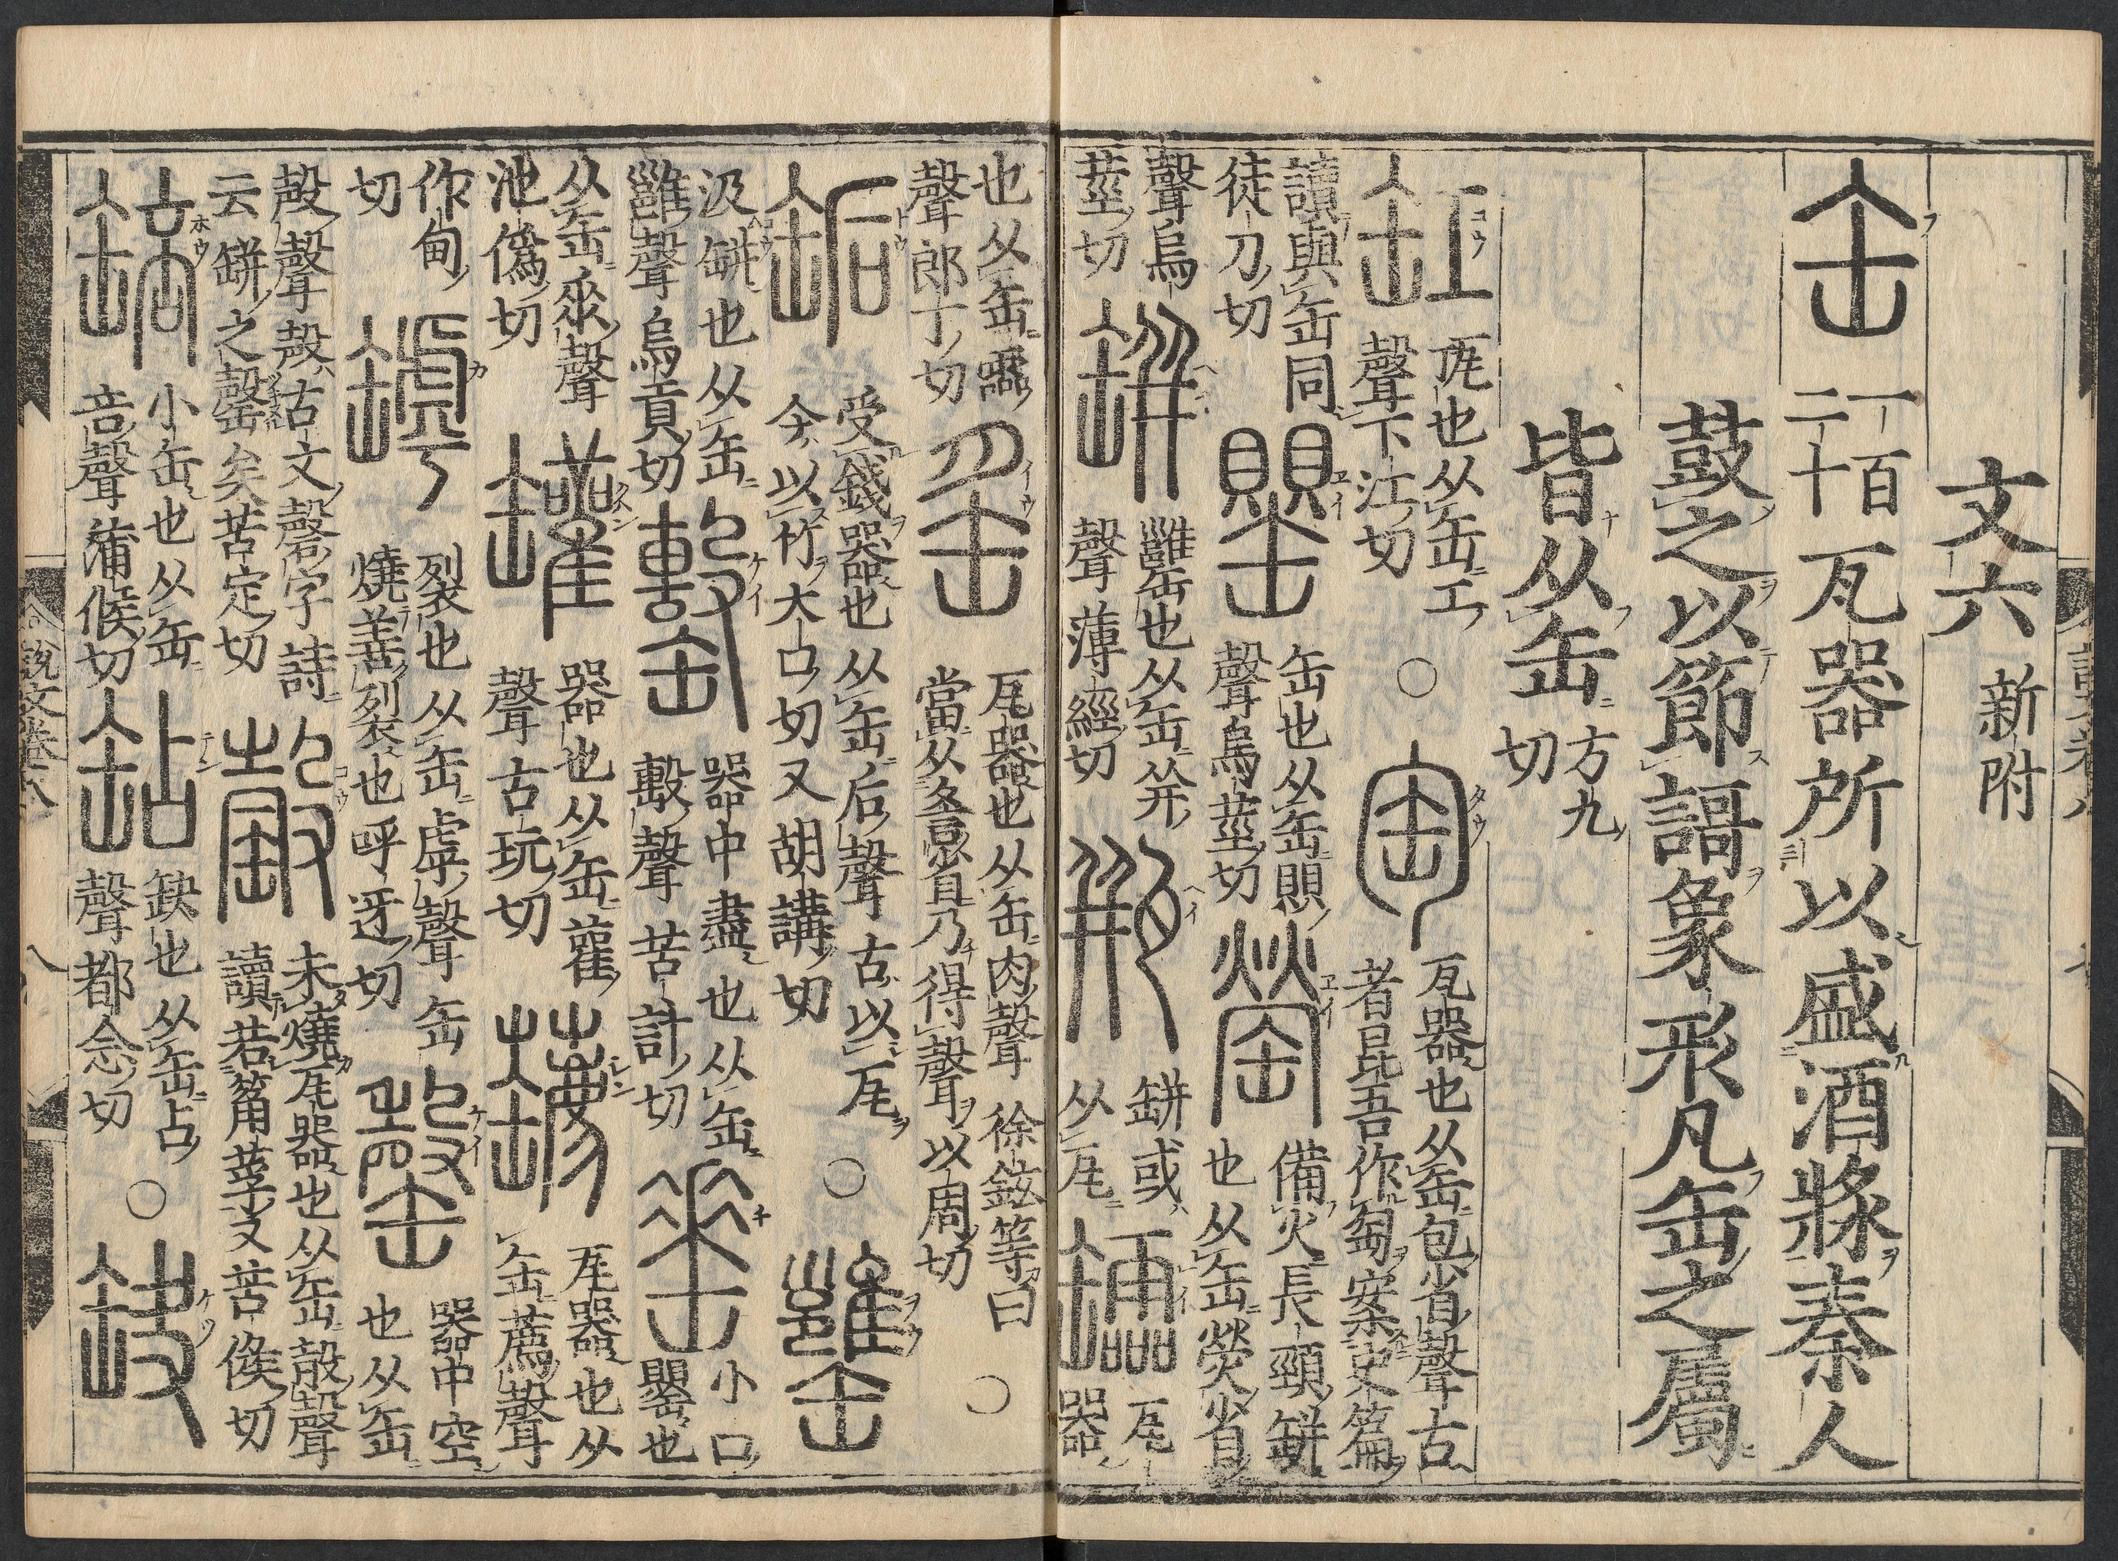 文六 新附
缶 一百二十 瓦器所以盛酒漿秦人
鼓之以節謌象形凡缶之屬
皆从缶 方九切
缸 瓨也从缶工聲下江切 ○ 匋 瓦器也从缶包省聲古者昆吾作匋案史篇
讀與缶同徒刀切 罌 缶也从缶賏聲烏莖切 罃 備火長頸缾也从缶熒省
聲烏莖切 缾 罋缶也从缶幷聲薄經切 瓶 缾或从瓦 瓦器
也从缶霝聲郎丁切 䍃 瓦器也从缶肉聲 徐鉉等曰當从𠱠省乃得聲以周切 ○
缿 受錢器也从缶后聲古以瓦今以竹大口切又胡講切 ○ 罋
汲缾也从缶雝聲烏貢切 罊 器中盡也从缶毄聲苦計切 小口罌也
从缶𠂹聲池僞切 罐 器也从缶雚聲古玩切 瓦器也从缶薦聲
作甸切 罅 裂也从缶虖聲缶燒善裂也呼迓切 罄 器中空也从缶
殸聲殸古文磬字詩云缾之罄矣苦定切 未燒瓦器也从缶㱿聲讀若筩莩又苦候切
䍌 小缶也从缶咅聲蒲候切 缺也从缶占聲都念切 ○ 缺
說文卷八